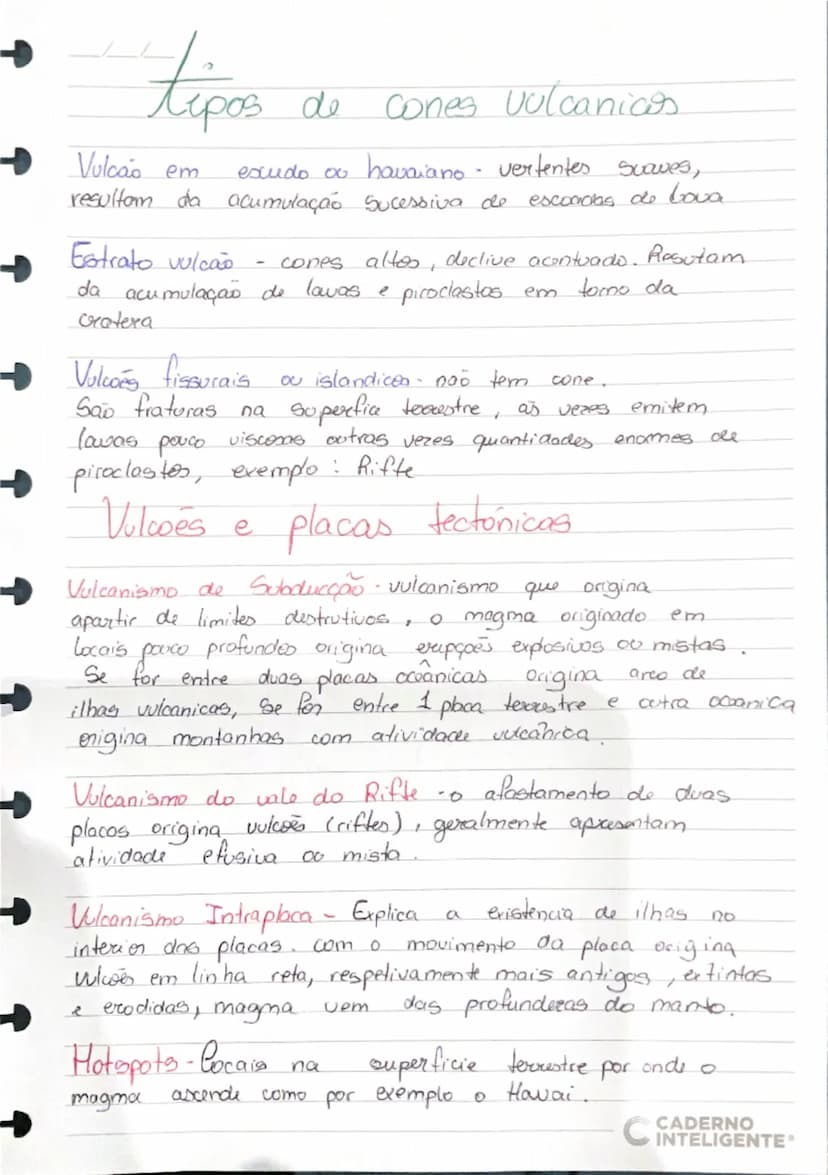 tipos de cones vulcanicos
Vulcão em escudo ou havaiano - vertentes suaves,
resultam da acumulação sucessiva de escoadas de lava
Estrato vulcão - cones altos, declive acentuado. Resutam
da acumulação de lavas e piroclastos em torno da
cratera
Vulcões fissurais ou islandicos - naõ tem cone.
São fraturas na superfice terrestre, as vezes emitem
lavas pouco viscosas outras vezes quantidades enormes de
piroclastos, exemplo: Rifte
Vulcoẽs e placas tectónicas
Vulcanismo de Subducção - vulcanismo que origina
apartir de limites destrutivos, o magma originado em
locais pouco profundos origina erupções explosivas ou mistas.
Se for entre duas placas oceânicas origina arco de
ilhas vulcanicas, Se for entre 1 placa terrestre e outra oceanica
origina montanhas com atividade vulcânica.
Vulcanismo do vale do Rifte - o afastamento de duas
placas origina vulcões (riftes), geralmente apresentam
atividade efusiva ou mista.
Vulcanismo Intraplaca - Explica a existencia de ilhas no
interior das placas. com o movimento da placa origina
vulcões em linha reta, respetivamente mais antigos, extintas
e erodidas, magma vem das profundezas do manto.
Hotspots - Locais na superficie terrestre por onde o
magma ascende como por exemplo o Hawai.
CADERNO
INTELIGENTE®